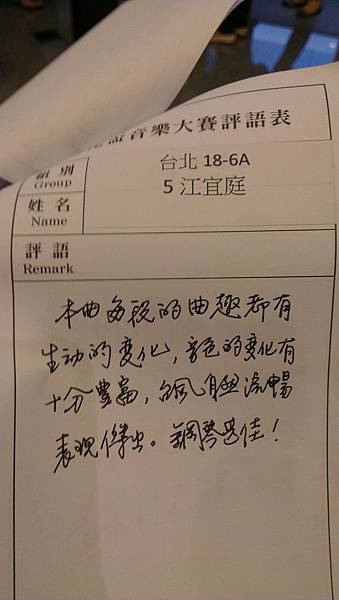 音樂大賽評語表
組別 台北 18-6A
Group
5 江宜庭
姓名
Name
評語
Remark
本曲每段的曲趣都有
生动的变化,音色的变化有
十分豐富,流暢
表現傑出。鋼琴甚佳!